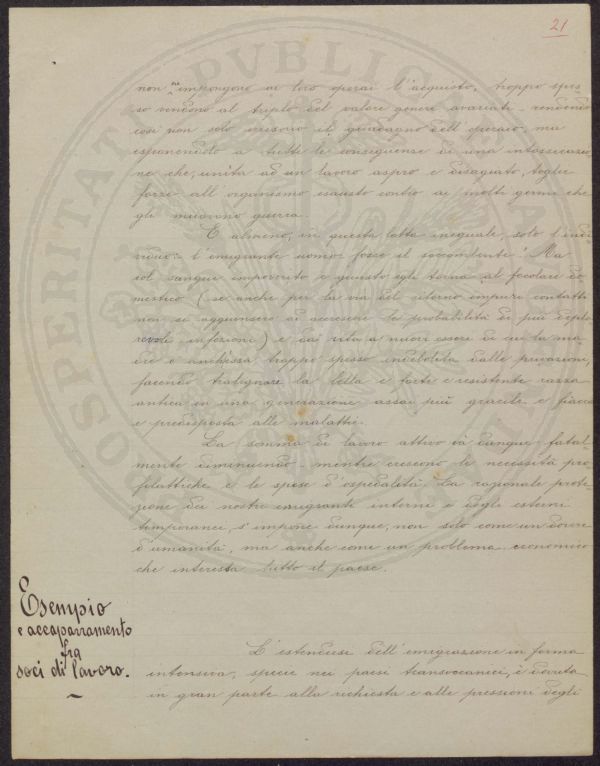 21
non ne impongono ai loro operai l'acquisto, troppo spes-
so vendono al triplo del valore generi avariati - rendendo
così non solo irrisorio il guadagno dell'operaio, ma
esponendolo a tutte le conseguenze di una intossicazio-
ne che, unita ad un lavoro aspro e disagiato, toglie
forze all'organismo esausto contro ai molti germi che
gli muovono guerra.
E almeno, in questa lotta ineguale, solo l'indi-
viduo - l'emigrante uomo - fosse il soccombente! Ma
col sangue impoverito e guasto egli torna al focolare do-
mestico (se anche per la via del ritorno impuri contatti
non si aggiunsero ad accrescere le probabilità di più deplo-
revoli infezioni) e dà vita a nuovi esseri di cui la ma-
dre è anch'essa troppo spesso indebolita dalle privazioni,
facendo tralignare la bella e forte e resistente razza
antica in una generazione assai più gracile e fiacca
e predisposta alle malattie.
La somma di lavoro attivo va dunque fatal-
mente diminuendo - mentre crescono le necessità pro-
filattiche e le spese d'ospedalità. La razionale prote-
zione dei nostri emigranti interni e degli esterni
temporanei, s'impone dunque, non solo come un dovere
d'umanità, ma anche come un problema economico
che interessa tutto il paese.
Esempio
e accaparramento
fra
soci di lavoro.
L'estendersi dell'emigrazione in forma
intensiva, specie nei paesi transoceanici, è dovuta
in gran parte alla richiesta e alle pressioni degli